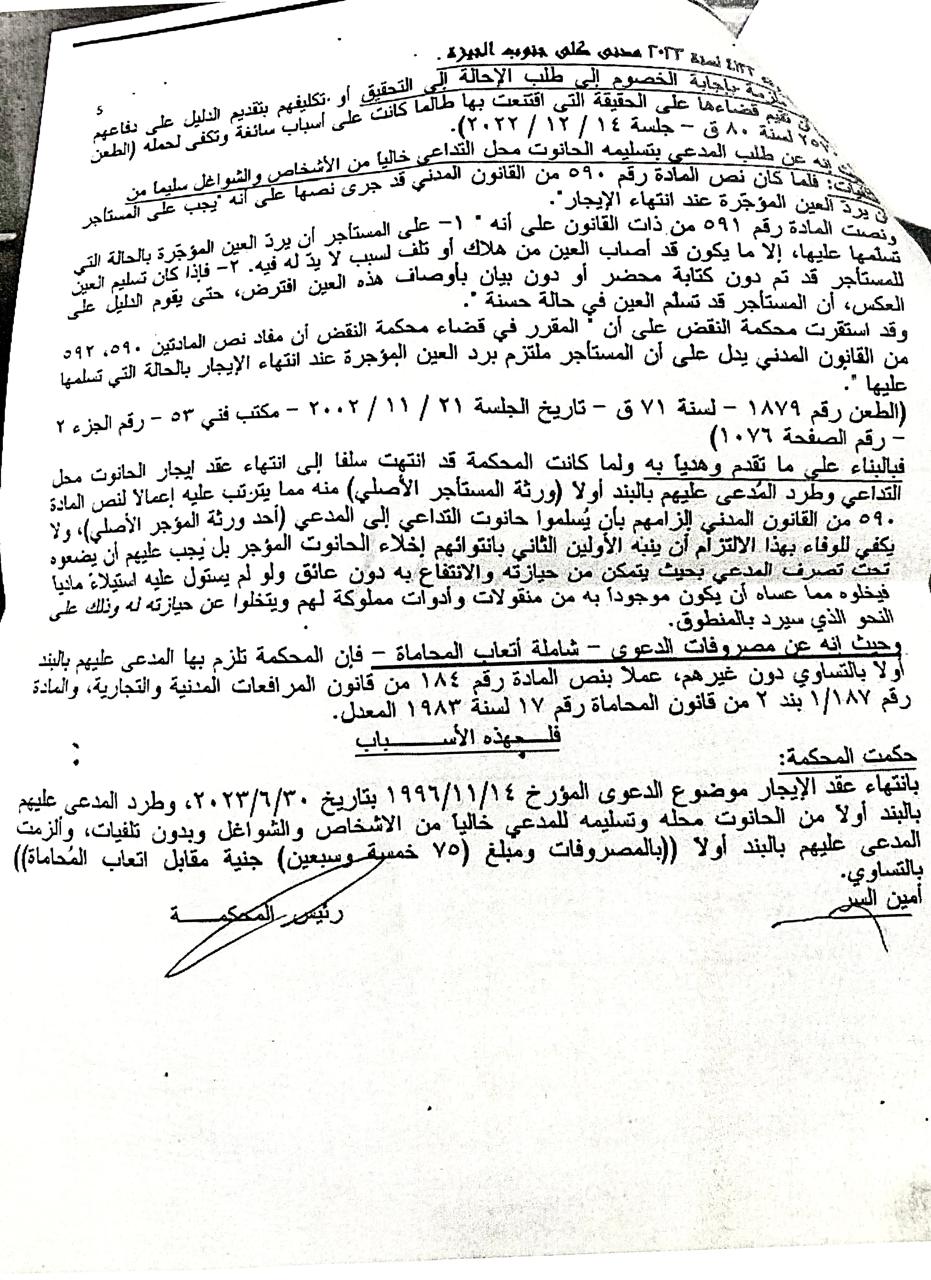 لسنة ٢٠٢٣ مدنى كلى جنوب الجيزة.
5
بإجابة الخصوم إلى طلب الإحالة إلى التحقيق أو تكليفهم بتقديم الدليل على دفاعهم
تقيم قضاءها على الحقيقة التي اقتنعت بها طالما كانت على أسباب سائغة وتكفى لحمله (الطعن
لسنة ٨٠ ق – جلسة ١٤ / ١٢ / ٢٠٢٢).
إنه عن طلب المدعي بتسليمه الحانوت محل التداعي خالياً من الأشخاص والشواغل سليما من
فلما كان نص المادة رقم ٥٩٠ من القانون المدني قد جرى نصها على أنه "يجب على المستأجر
أن يردّ العين المؤجّرة عند انتهاء الإيجار".
ونصت المادة رقم ٥٩١ من ذات القانون على أنه " ١– على المستأجر أن يردّ العين المؤجّرة بالحالة التي
تسلمها عليها، إلا ما يكون قد أصاب العين من هلاك أو تلف لسبب لا يدّ له فيه. ٢– فإذا كان تسليم العين
للمستأجر قد تم دون كتابة محضر أو دون بيان بأوصاف هذه العين افترض، حتى يقوم الدليل على
العكس، أن المستأجر قد تسلّم العين في حالة حسنة ".
وقد استقرت محكمة النقض على أن " المقرر في قضاء محكمة النقض أن مفاد نص المادتين ٥٩٠، ٥٩٢
من القانون المدني يدل على أن المستأجر ملتزم برد العين المؤجرة عند انتهاء الإيجار بالحالة التي تسلمها
عليها ".
(الطعن رقم ١٨٧٩ – لسنة ٧١ ق – تاريخ الجلسة ٢١ / ١١ / ٢٠٠٢ – مكتب فني ٥٣ – رقم الجزء ٢
– رقم الصفحة ١٠٧٦)
فبالبناء علي ما تقدم وهدياً به ولما كانت المحكمة قد انتهت سلفا إلى انتهاء عقد إيجار الحانوت محل
التداعي وطرد المُدعى عليهم بالبند أولا (ورثة المستأجر الأصلي) منه مما يترتب عليه إعمالا لنص المادة
٥٩٠ من القانون المدني إلزامهم بأن يُسلموا حانوت التداعي إلى المدعي (أحد ورثة المؤجر الأصلي)، ولا
يكفي للوفاء بهذا الالتزام أن ينبه الأولين الثاني بانتوائهم إخلاء الحانوت المؤجر بل يجب عليهم أن يضعوه
تحت تصرف المدعي بحيث يتمكن من حيازته والانتفاع به دون عائق ولو لم يستول عليه استيلاءً ماديا
فيخلوه مما عساه أن يكون موجوداً به من منقولات وأدوات مملوكة لهم ويتخلوا عن حيازته له وذلك على
النحو الذي سيرد بالمنطوق.
وحيث إنه عن مصروفات الدعوى – شاملة أتعاب المحاماة – فإن المحكمة تلزم بها المدعى عليهم بالبند
أولاً بالتساوي دون غيرهم، عملاً بنص المادة رقم ١٨٤ من قانون المرافعات المدنية والتجارية، والمادة
رقم ١/١٨٧ بند ٢ من قانون المحاماة رقم ١٧ لسنة ١٩٨٣ المعدل.
فلــهذه الأســـباب
حكمت المحكمة:
بانتهاء عقد الإيجار موضوع الدعوى المؤرخ ١٩٩٦/١١/١٤ بتاريخ ٢٠٢٣/٦/٣٠، وطرد المدعى عليهم
بالبند أولاً من الحانوت محله وتسليمه للمدعي خالياً من الاشخاص والشواغل وبدون تلفيات، وألزمت
المدعى عليهم بالبند أولا ((بالمصروفات ومبلغ (٧٥ خمسة وسبعين) جنية مقابل اتعاب المُحاماة))
بالتساوي.
أمين السر
رئيس المحكمــة